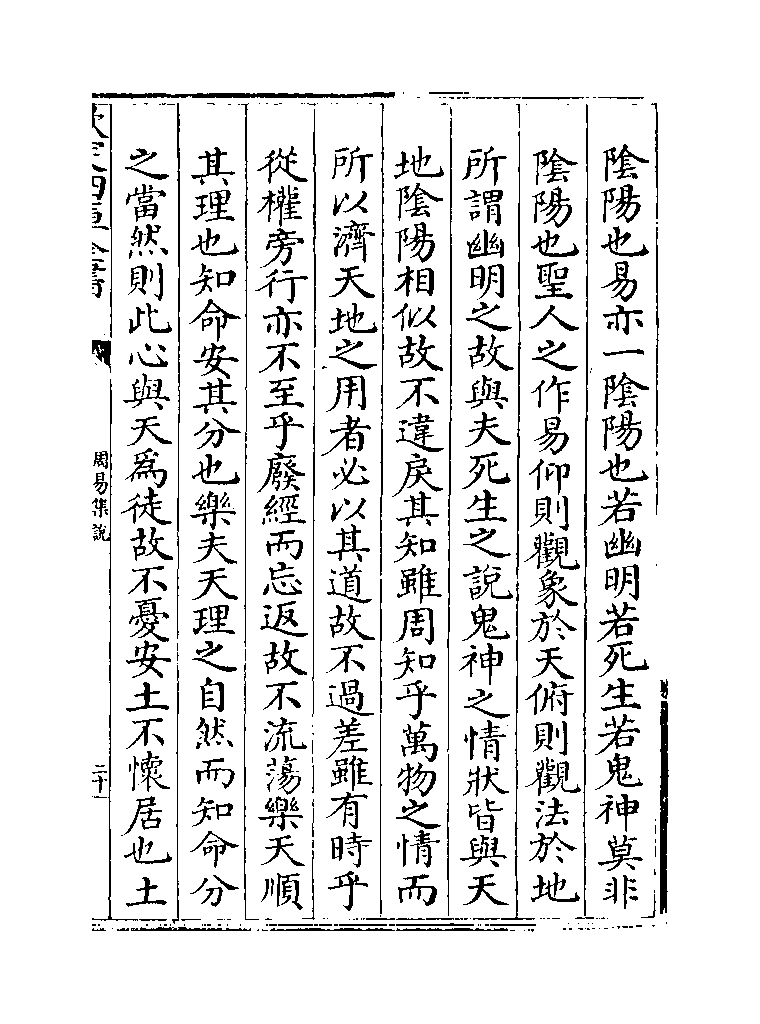 陰陽也易亦一陰陽也若幽明若死生若鬼神莫非
陰陽也聖人之作易仰則觀象於天俯則觀法於地
所謂幽明之故與夫死生之說鬼神之情狀皆與天
地陰陽相似故不違戾其知雖周知乎萬物之情而
所以濟天地之用者必以其道故不過差雖有時乎
從權旁行亦不至乎廢經而忘返故不流蕩樂天順
其理也知命安其分也樂夫天理之自然而知命分
之當然則此心與天為徒故不憂安土不懷居也土
欽定四庫全書
周易集說
二十一